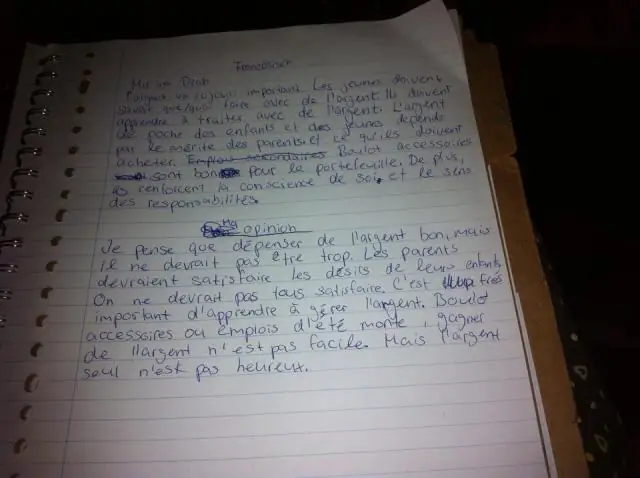 Französisch
L'argent un toujours important. Les jeunes doivent
savoir que/quoi faire avec de l'argent. Ils doivent
apprendre à traiter avec de l'argent. L'argent
de poche des enfants et des jeunes dépends
par le mérite des parents et ce qu'ils doivent
acheter. Emplois secondaires Boulot accessoires
sont bon pour le portefeuille. De plus,
ils renforcent la conscience de soi, et le sens
des responsabilités.
Ma opinion
Je pense que dépenser de l'argent bon, mais
il ne devrait pas être trop. Les parents
devraient satisfaire les désirs de leurs enfants.
On ne devrait pas tous satisfaire. C'est très
important d'apprendre à gérer l'argent. Boulot
accessoires ou Emplois d'été monte, gagner
de l'argent n'est pas facile. Mais l'argent
seul n'est pas heureux.